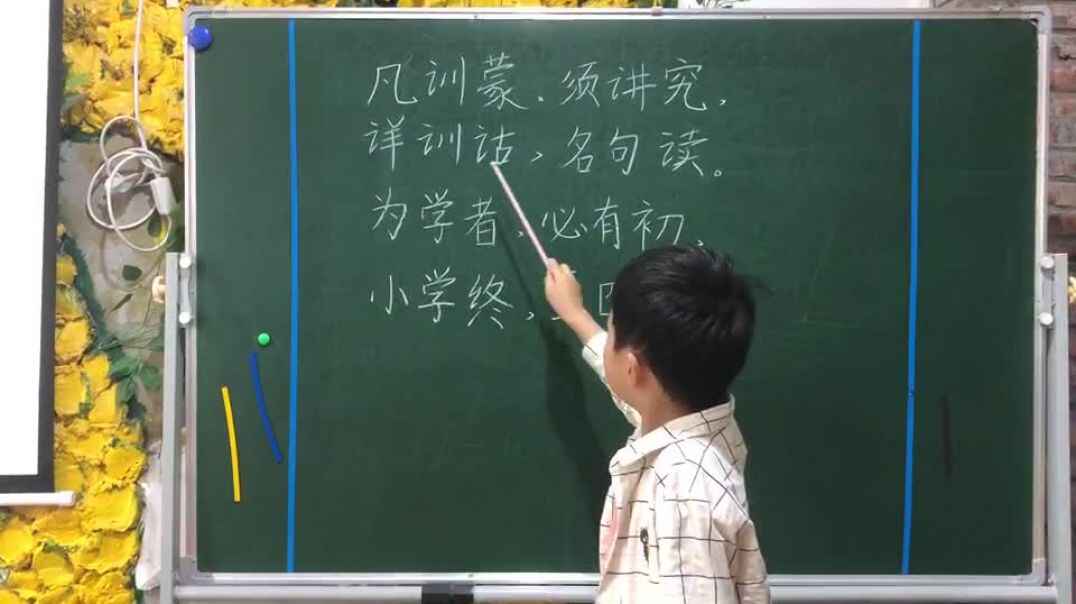 凡训蒙，须讲究，
详训诂，名句读。
为学者，必有初，
小学终，